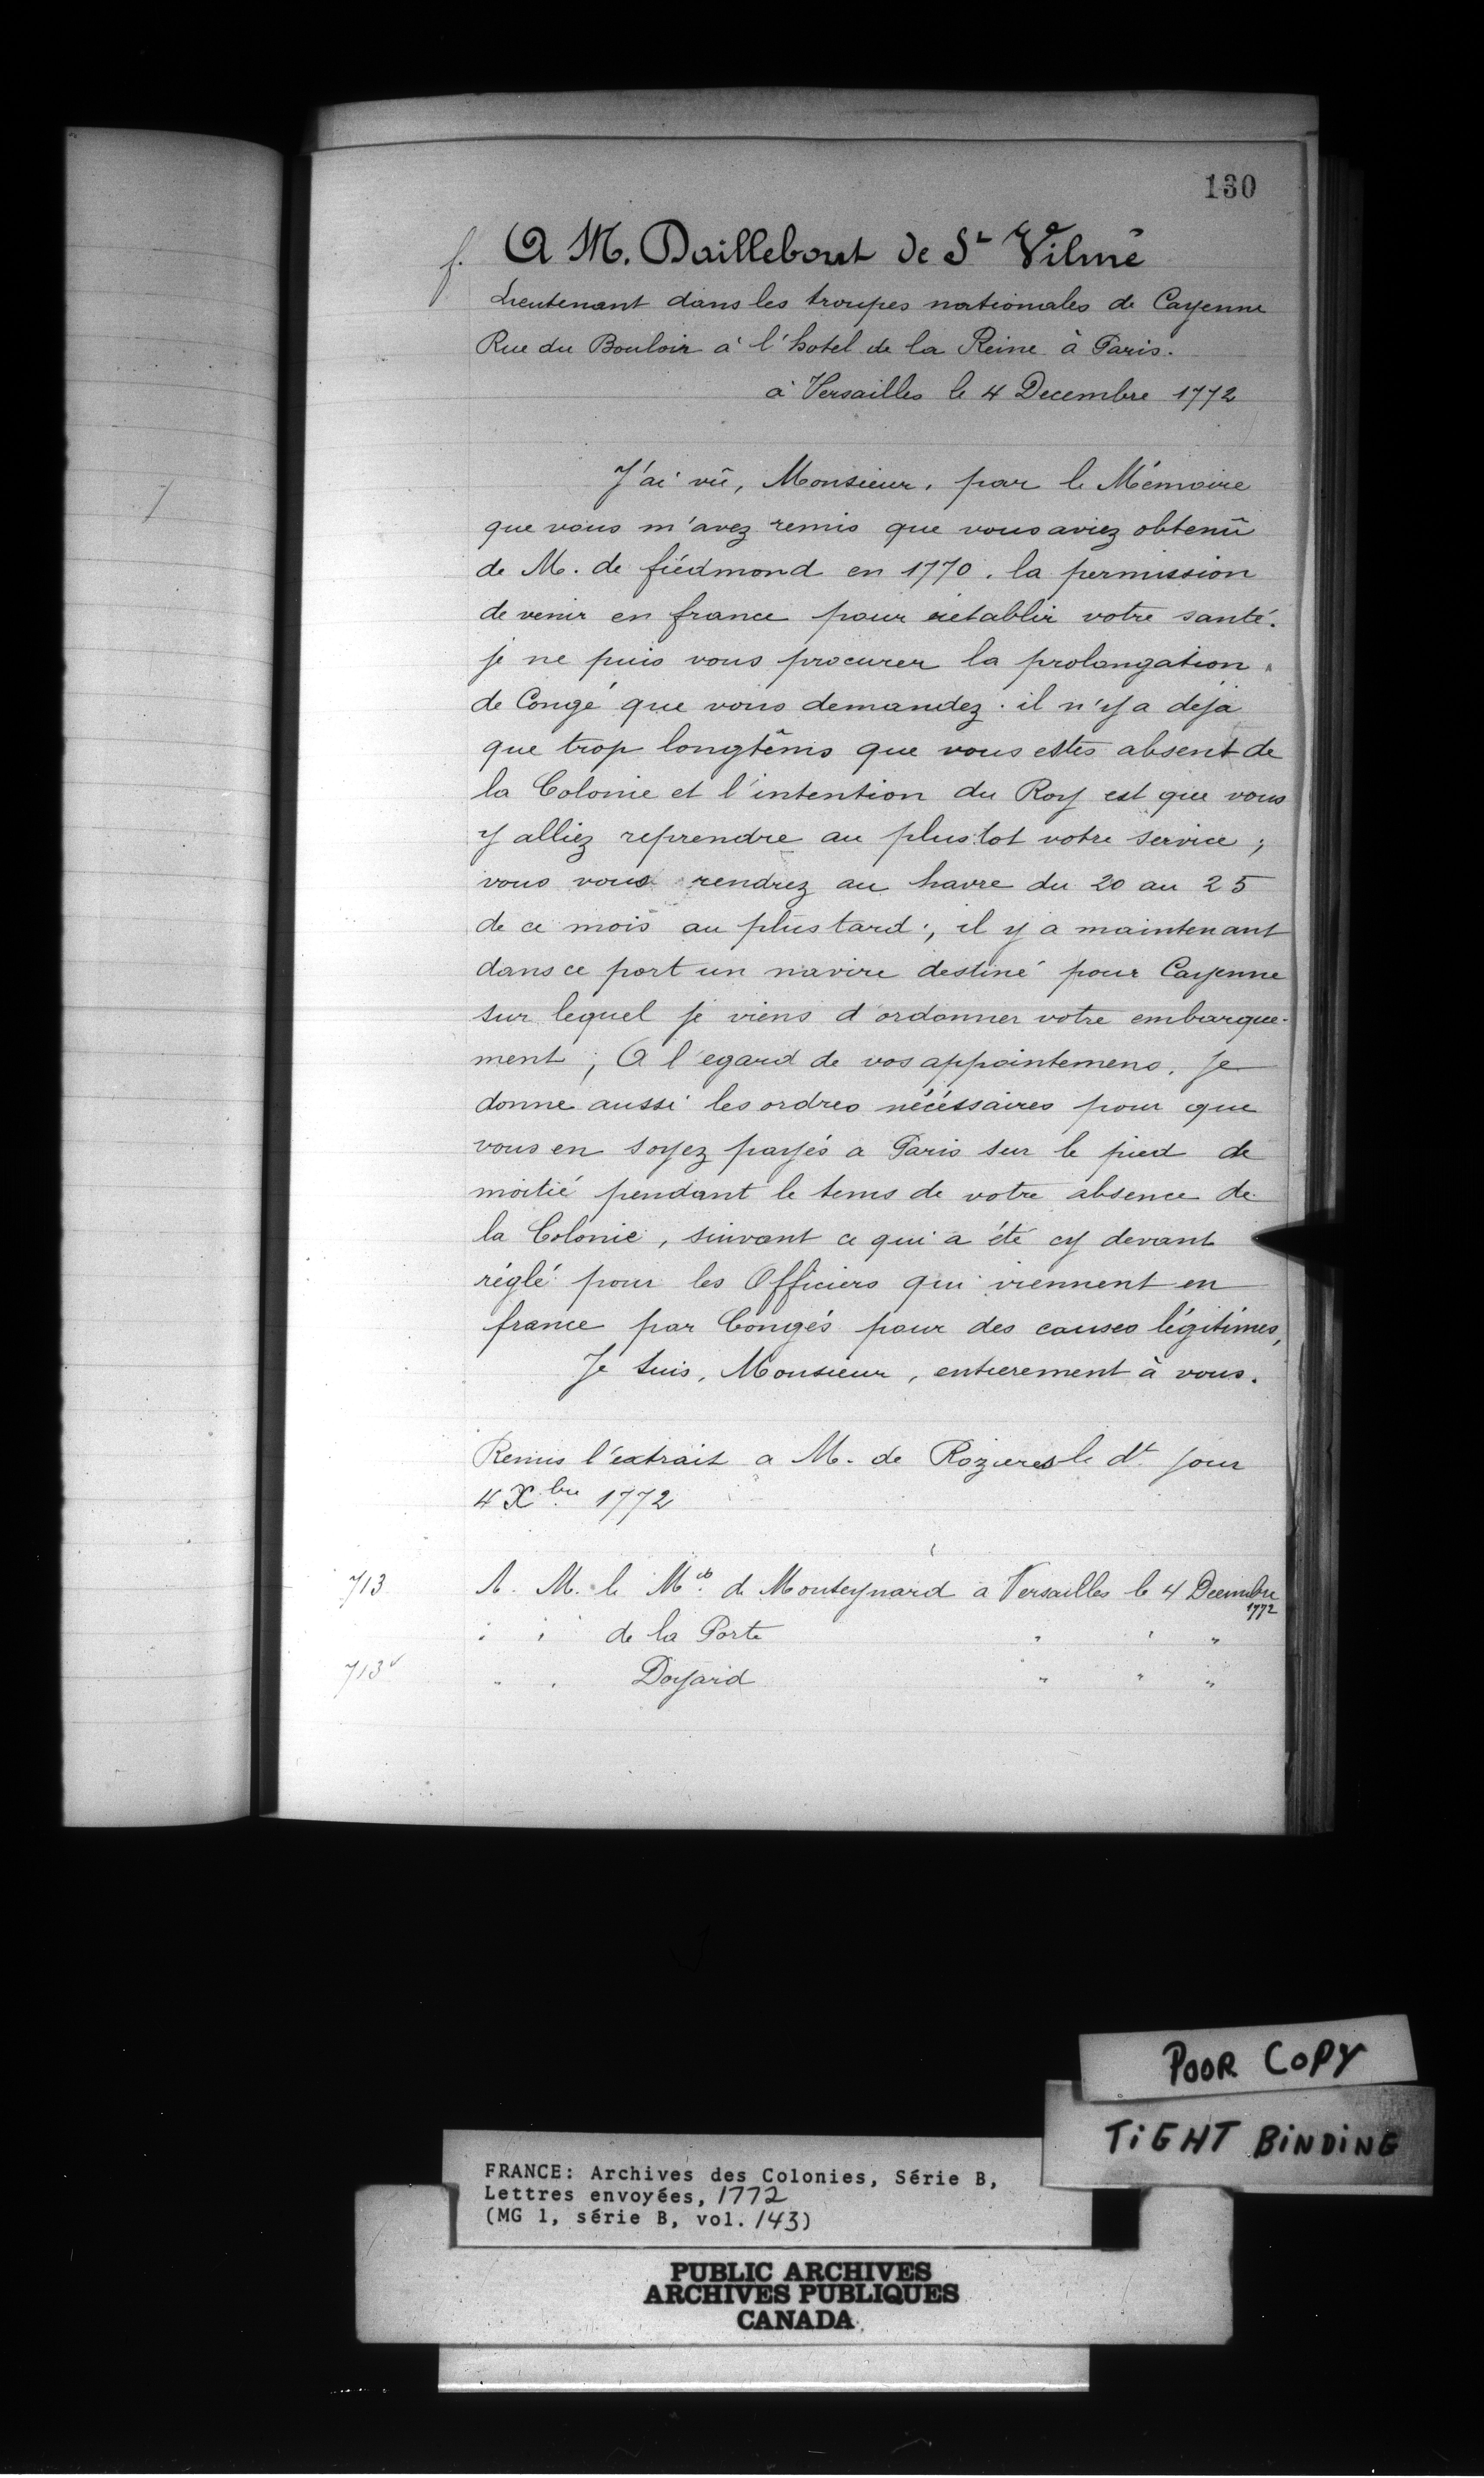 130
f. A M. Daillebout de St Vilmé
Lieutenant dans les troupes nationales de Cayenne
Rue du Bouloir à l'hotel de la Reine à Paris.
à Versailles le 4 Decembre 1772
J'ai vû, Monsieur, par le Mémoire
que vous m'avez remis que vous aviez obtenû
de M. de fiédmond en 1770. la permission
de venir en france pour rétablir votre santé.
je ne puis vous procurer la prolongation
de Congé que vous demandez. il n'y a déjà
que trop longtêms que vous estes absent de
la Colonie et l'intention du Roy est que vous
y alliez reprendre au plustot votre service;
vous vous rendrez au havre du 20 au 25
de ce mois au plustard; il y a maintenant
dans ce port un navire destiné pour Cayenne
sur lequel je viens d'ordonner votre embarque-
ment; A l'egard de vos appointemens. Je
donne aussi les ordres nécéssaires pour que
vous en soyez payés a Paris sur le pied de
moitié pendant le tems de votre absence de
la Colonie, suivant ce qui a été cy devant
réglé pour les Officiers qui viennent en
france par Congés pour des causes légitimes,
Je suis, Monsieur, entierement à vous.
Remis l'extrait a M. de Rozieres le dt jour
4 Xbre 1772
713 A. M. le Mis de Monteynard a Versailles le 4 Decembre
1772
" " de la Porte " " "
713v " " Doyard " " "
POOR COPY
TIGHT BINDING
FRANCE: Archives des Colonies, Série B,
Lettres envoyées, 1772
(MG 1, série B, vol. 143)
PUBLIC ARCHIVES
ARCHIVES PUBLIQUES
CANADA